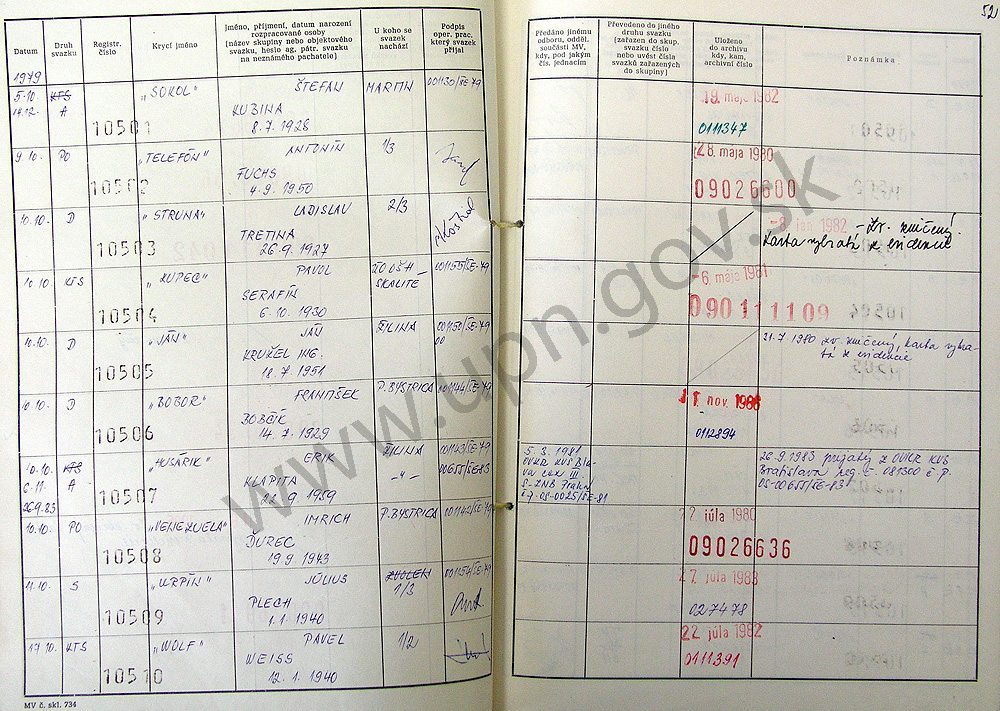 52
Datum
Druh svazku
Registr. číslo
Krycí jméno
Jméno, příjmení, datum narození
rozpracované osoby
(název skupiny nebo objektového
svazku, heslo ag. pátr. svazku
na neznámého pachatele)
U koho se
svazek
nachází
Podpis
oper. prac.
který svazek
přijal
Předáno jinému
odboru, odděl.
součásti MV,
kdy, pod jakým
čís. jednacím
Převedeno do jiného
druhu svazku
(zařazen do skup.
svazku číslo
nebo uvést čísla
svazků zařazených
do skupiny)
Uloženo
do archivu
kdy, kam,
archivní číslo
Poznámka
1979
5.10. KTS "SOKOL" ŠTEFAN MARTIN 001130/SE-79
14.12. A
10501 KUBINA
8.7.1928
19. mája 1982
0111347
9.10. PO "TELEFÓN" ANTONÍN 1/3
10502 FUCHS
4.9.1950
28. mája 1980
09026600
10.10. D "STRUNA" LADISLAV 2/3
10503 TRETINA
26.9.1927
-8. jan 1982 - Zv. zničený.
Karta vybratá z evidencie
10.10 KTS "KUPEC" PAVOL ZO OŠH - 001155/SE-79
SKALITE
10504 SERAFÍN
6.10.1930
-6. mája 1981
090111109
10.10. D "JÁN" JÁN ŽILINA 001150/SE-79
00
10505 KRUŽEL ING.
18.7.1951
31.7.1980 zv. zničený, karta vybra-
tá z evidencie
10.10. D "BOBOR" FRANTIŠEK P. BYSTRICA 001144/SE-79
10506 BOBČÍK
14.7.1929
11. nov. 1986
0112894
10.10. KTS "HUSÁRIK" ERIK ŽILINA 001143/SE-79
6.11. A -"- 00655/SE-83
26.9.83
10507 KLAPITA
9.1959
5.3.1981
S-ZNB Praha
26.9.1983 prijatý z OVKR KVS
Bratislava, reg. č. 081300 č.p.
OS-00655/SE-83
10.10. PO "VENEZUELA" IMRICH P. BYSTRICA 001142/SE-79
10508 ĎUREC
19.9.1943
22. júla 1980
09026636
11.10. S "URPÍN" JÚLIUS ZVOLEN 001154/SE-79
1/3
10509 PLECH
1.1.1940
27. júla 1983
027478
17.10. KTS "WOLF" PAVEL 1/2
10510 WEISS
12.1.1940
22. júla 1982
0111391
MV č. skl. 734
www.upn.gov.sk